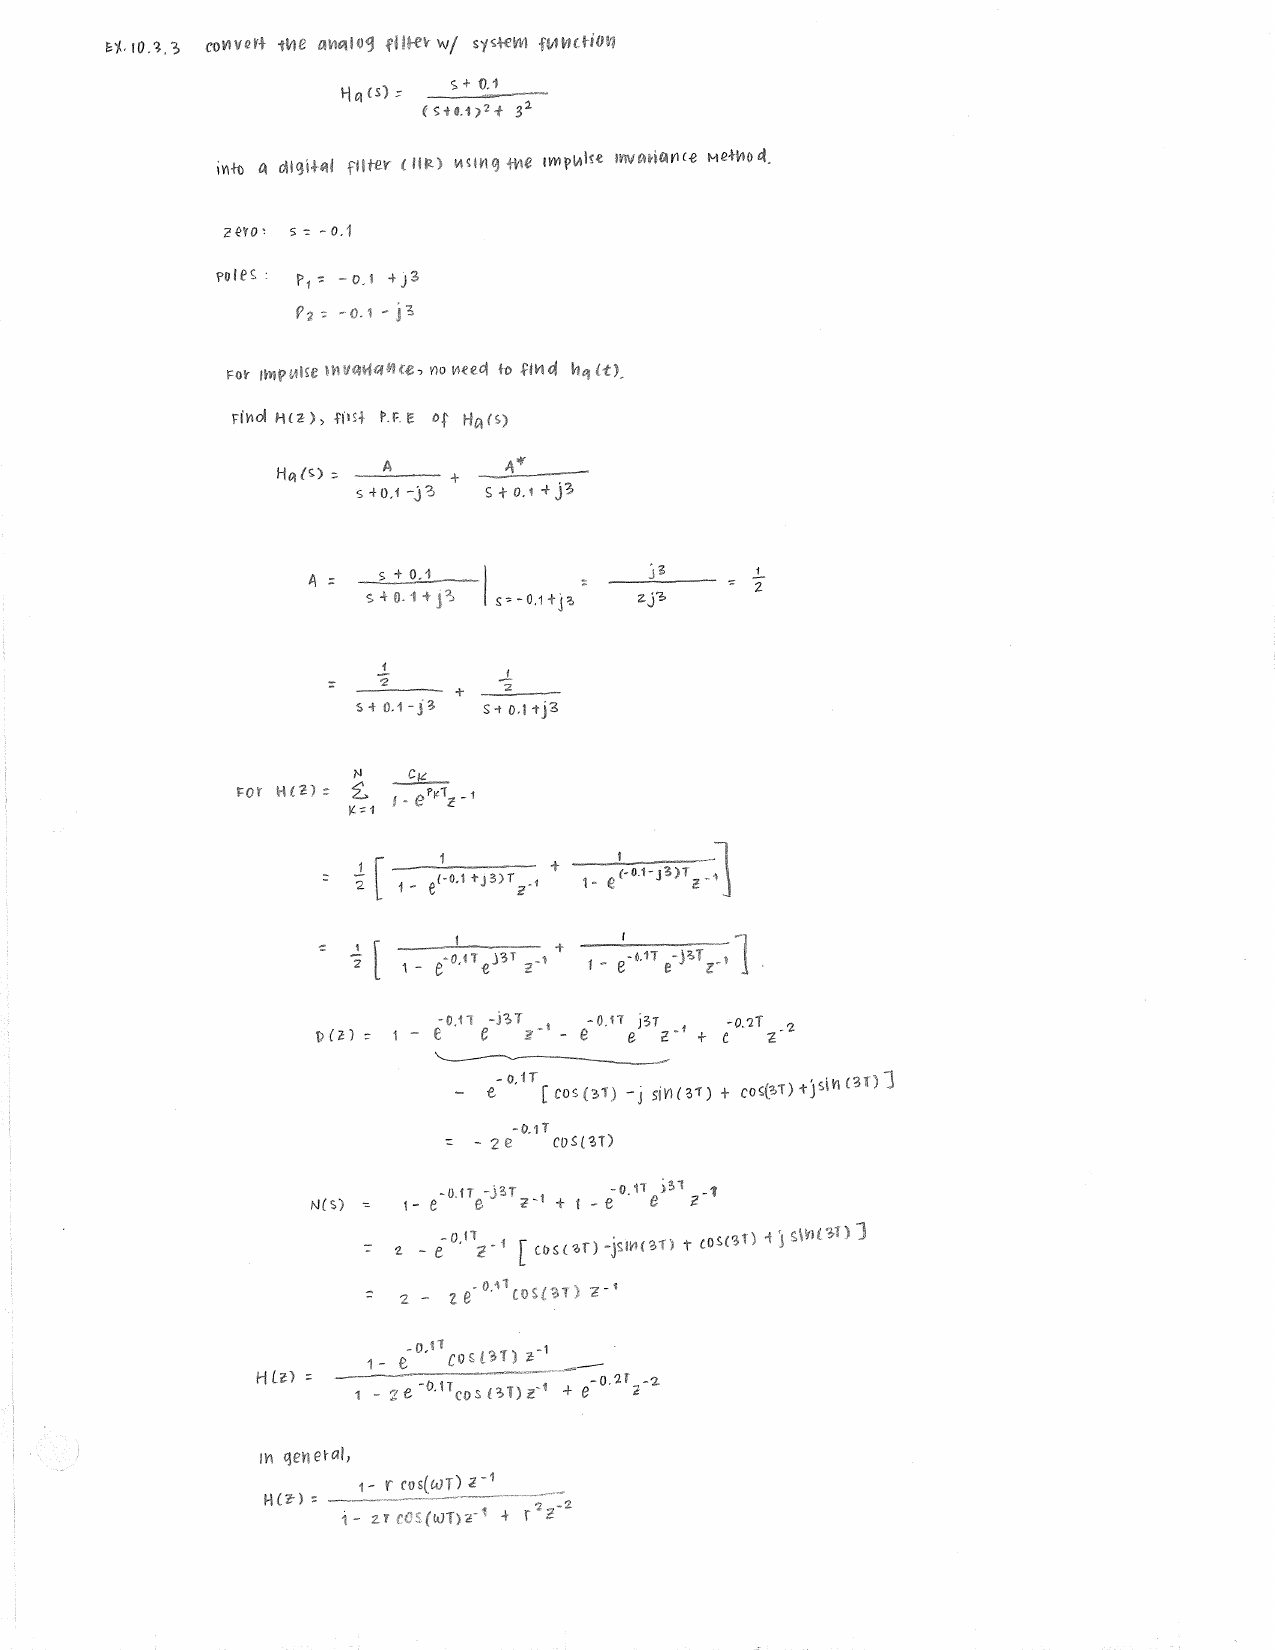 EX. 10.3.3 convert the analog filter w/ system function
Ha(s) = (s + 0.1) / ((s+0.1)² + 3²)
into a digital filter (IIR) using the impulse invariance method.
zero: s = -0.1
poles: P₁ = -0.1 + j3
P₂ = -0.1 - j3
For impulse invariance, no need to find ha(t).
Find H(z), first P.F.E of Ha(s)
Ha(s) = A / (s+0.1-j3) + A* / (s+0.1+j3)
A = (s+0.1) / (s+0.1+j3) | s=-0.1+j3 = j3 / 2j3 = 1/2
= (1/2) / (s+0.1-j3) + (1/2) / (s+0.1+j3)
For H(z) = Σ_{K=1}^{N} C_K / (1 - e^{P_K T} z^{-1})
= 1/2 [ 1 / (1 - e^{(-0.1+j3)T} z^{-1}) + 1 / (1 - e^{(-0.1-j3)T} z^{-1}) ]
= 1/2 [ 1 / (1 - e^{-0.1T} e^{j3T} z^{-1}) + 1 / (1 - e^{-0.1T} e^{-j3T} z^{-1}) ].
D(z) = 1 - e^{-0.1T} e^{-j3T} z^{-1} - e^{-0.1T} e^{j3T} z^{-1} + e^{-0.2T} z^{-2}
- e^{-0.1T} [cos(3T) - j sin(3T) + cos(3T) + j sin(3T)]
= -2e^{-0.1T} cos(3T)
N(s) = 1 - e^{-0.1T} e^{-j3T} z^{-1} + 1 - e^{-0.1T} e^{j3T} z^{-1}
= 2 - e^{-0.1T} z^{-1} [cos(3T) - j sin(3T) + cos(3T) + j sin(3T)]
= 2 - 2e^{-0.1T} cos(3T) z^{-1}
H(z) = (1 - e^{-0.1T} cos(3T) z^{-1}) / (1 - 2e^{-0.1T} cos(3T) z^{-1} + e^{-0.2T} z^{-2})
In general,
H(z) = (1 - r cos(ωT) z^{-1}) / (1 - 2r cos(ωT) z^{-1} + r² z^{-2})